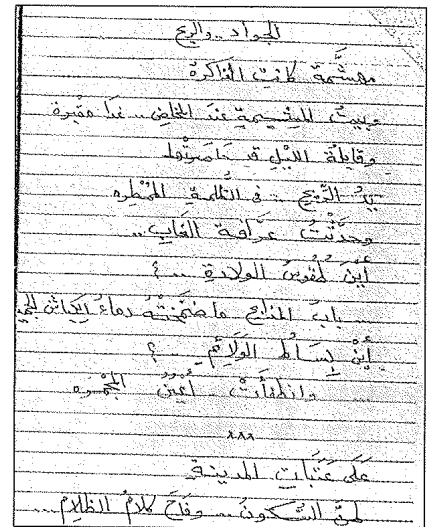 الجواد.. والريح
مهشَّمة كانت الذاكرة
وبيتُ المشيمةِ عند المخاضِ.. غدا مقبرة
وقابلة الليلِ قد
يدُ الريحِ.. في الظلمةِ الممطره
وحدَّثتُ عرَّافةَ الغابِ..
أينَ طُقوسُ الولادةِ..؟
بابُ المذابحِ ما ضمَّختْهُ دماءُ الكباشِ
أينْ بِساطُ الولائمِ..؟
وانطفأتْ.. أعينُ المجمره
٨٨٨
على عَتَباتِ المدينةِ
السكونَ.. وفاحَ كلامُ الظلامِ...